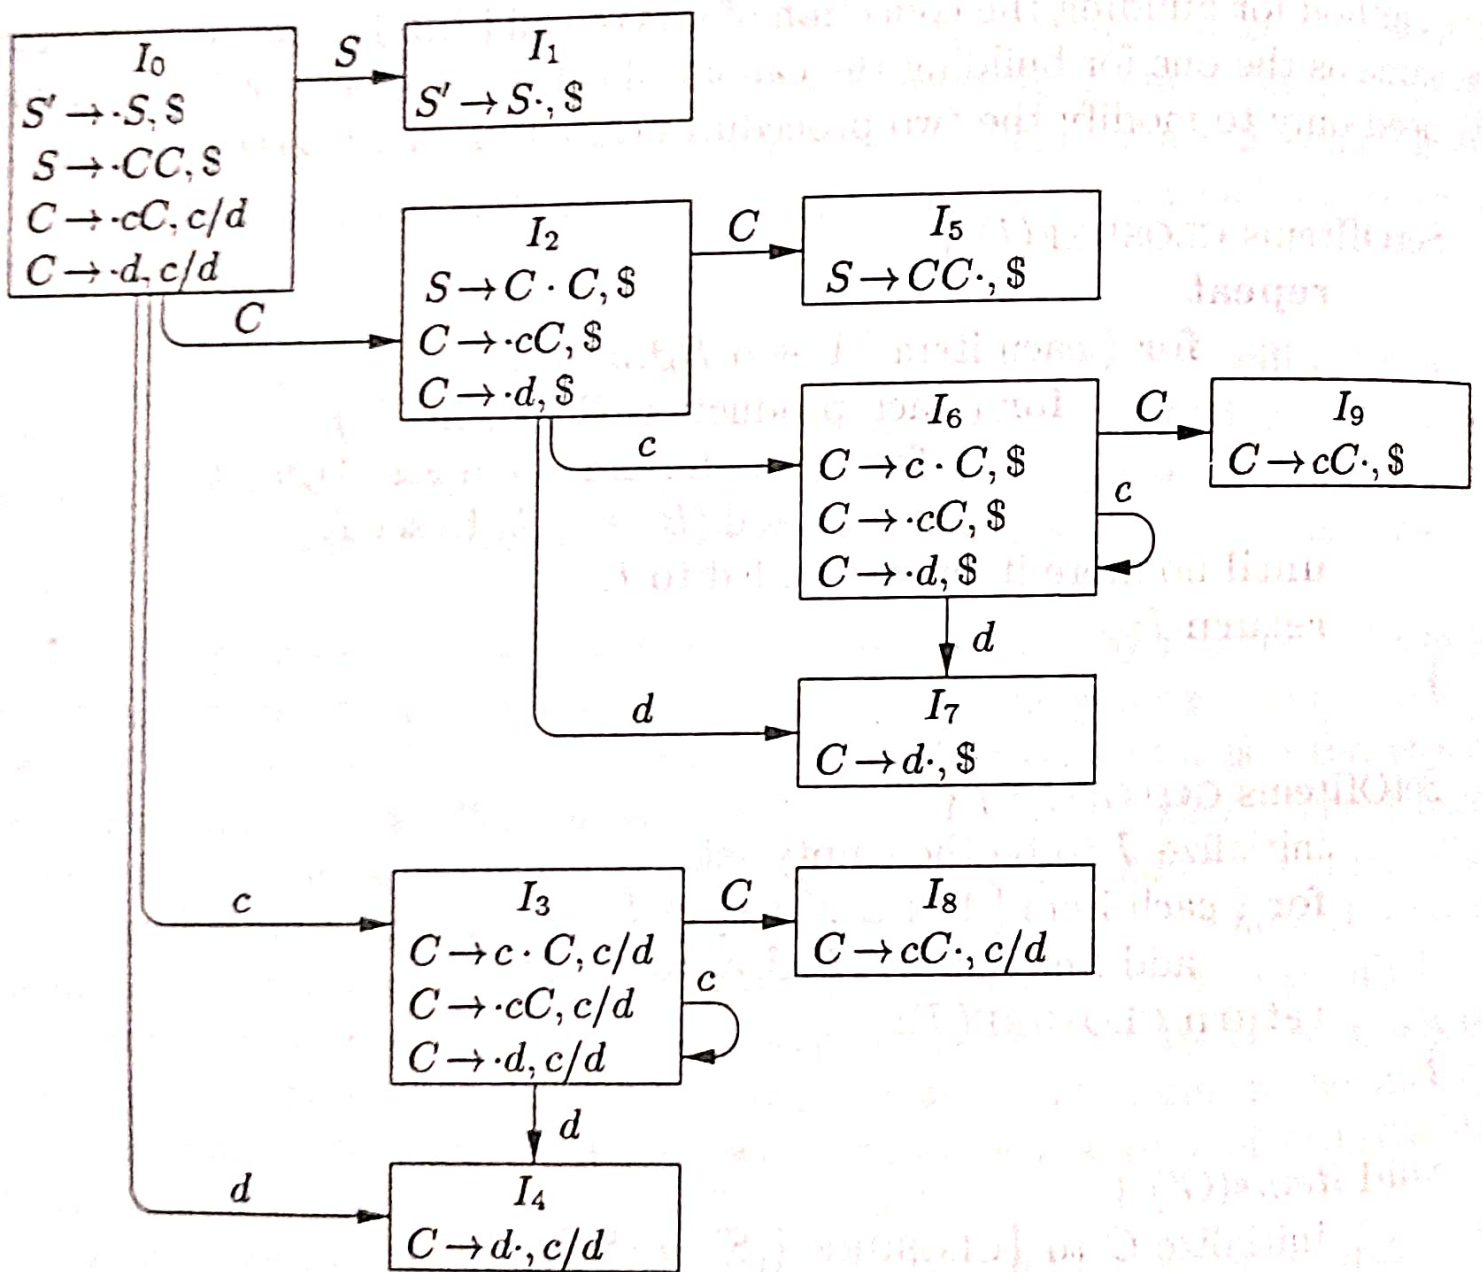 I₀
S' → ·S, $
S → ·CC, $
C → ·cC, c/d
C → ·d, c/d
S
I₁
S' → S·, $
C
I₂
S → C · C, $
C → ·cC, $
C → ·d, $
C
I₅
S → CC·, $
c
I₆
C → c · C, $
C → ·cC, $
C → ·d, $
C
I₉
C → cC·, $
c
d
d
I₇
C → d·, $
c
I₃
C → c · C, c/d
C → ·cC, c/d
C → ·d, c/d
C
I₈
C → cC·, c/d
c
d
d
I₄
C → d·, c/d
repeat
until
return